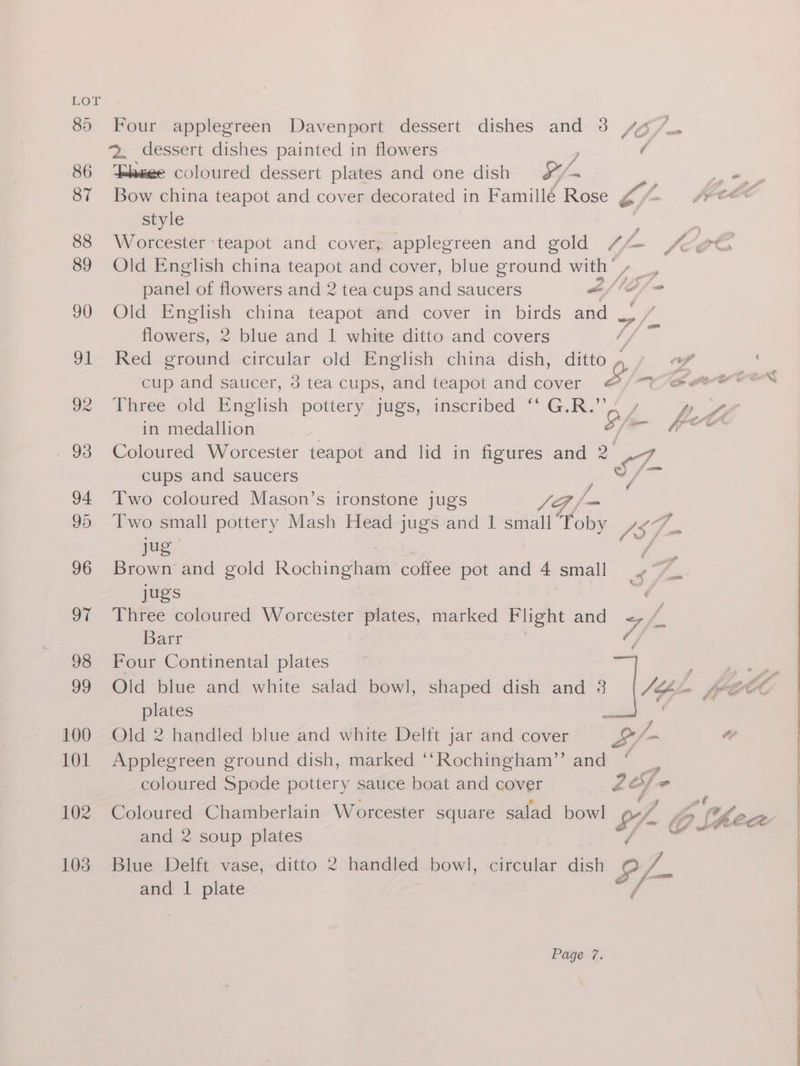 LOT
85 Four applegreen Davenport dessert dishes and 3 15/-
2 dessert dishes painted in flowers
86 Three coloured dessert plates and one dish 8/-
87 Bow china teapot and cover decorated in Famillé Rose
style
88 Worcester teapot and cover, applegreen and gold
89 Old English china teapot and cover, blue ground with
panel of flowers and 2 tea cups and saucers
90 Old English china teapot and cover in birds and
flowers, 2 blue and 1 white ditto and covers
91 Red ground circular old English china dish, ditto
cup and saucer, 3 tea cups, and teapot and cover
92 Three old English pottery jugs, inscribed “G.R.”
in medallion
93 Coloured Worcester teapot and lid in figures and 2
cups and saucers
94 Two coloured Mason’s ironstone jugs
95 Two small pottery Mash Head jugs and 1 small Toby
jug
96 Brown and gold Rochingham coffee pot and 4 small
jugs
97 Three coloured Worcester plates, marked Flight and
Barr
98 Four Continental plates
99 Old blue and white salad bowl, shaped dish and 3
plates
100 Old 2 handled blue and white Delft jar and cover
101 Applegreen ground dish, marked “Rochingham” and
coloured Spode pottery sauce boat and cover
102 Coloured Chamberlain Worcester square salad bowl
and 2 soup plates
103 Blue Delft vase, ditto 2 handled bowl, circular dish
and 1 plate
Page 7.